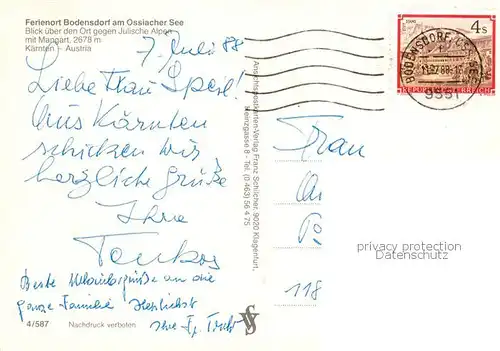 Ferienort Bodensdorf am Ossiacher See
Blick über den Ort gegen Julische Alpen
mit Mangart, 2678 m
Kärnten - Austria
7. Juli 88
Liebe Frau
Aus Kärnten
schicken wir
herzliche Grüße
Ihre
Beste Urlaubsgrüße an die
ganze Familie Herzlichst
Ihre
4/587 Nachdruck verboten
Ansichtspostkarten-Verlag Franz Schilcher, 9020 Klagenfurt,
Heinzgasse 8 - Tel. (0 463) 56 4 75
4 S
REPUBLIK ÖSTERREICH
9551
Frau
118
privacy protection
Datenschutz